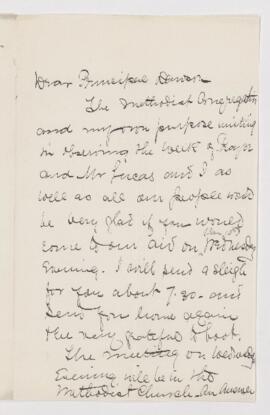 Dear Principal Dawson
The Methodist Congregation
and my own purpose uniting
in observing the week of Prayer
and Mr Lucas and I as
well as all our people would
be very glad if you would
come to our aid on Wednesday
Evening. I will send a sleigh
for you about 7.30 - and
send you home again
very grateful to boot.
The meeting on Wednesday
Evening will be in the
Methodist Church. An answer